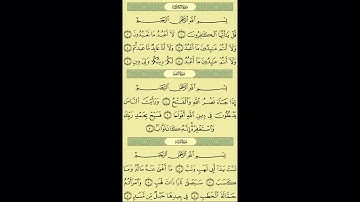 بِسْمِ ٱللَّهِ ٱلرَّحْمَٰنِ ٱلرَّحِيمِ
قُلْ يَٰٓأَيُّهَا ٱلْكَٰفِرُونَ ١ لَآ أَعْبُدُ مَا تَعْبُدُونَ ٢
وَلَآ أَنتُمْ عَٰبِدُونَ مَآ أَعْبُدُ ٣ وَلَآ أَنَا۠ عَابِدٌ مَّا عَبَدتُّمْ ٤
وَلَآ أَنتُمْ عَٰبِدُونَ مَآ أَعْبُدُ ٥ لَكُمْ دِينُكُمْ وَلِيَ دِينِ ٦
بِسْمِ ٱللَّهِ ٱلرَّحْمَٰنِ ٱلرَّحِيمِ
إِذَا جَآءَ نَصْرُ ٱللَّهِ وَٱلْفَتْحُ ١ وَرَأَيْتَ ٱلنَّاسَ
يَدْخُلُونَ فِى دِينِ ٱللَّهِ أَفْوَاجًا ٢ فَسَبِّحْ بِحَمْدِ رَبِّكَ
وَٱسْتَغْفِرْهُ إِنَّهُۥ كَانَ تَوَّابًۢا ٣
بِسْمِ ٱللَّهِ ٱلرَّحْمَٰنِ ٱلرَّحِيمِ
تَبَّتْ يَدَآ أَبِى لَهَبٍ وَتَبَّ ١ مَآ أَغْنَىٰ عَنْهُ مَالُهُۥ وَمَا
كَسَبَ ٢ سَيَصْلَىٰ نَارًا ذَاتَ لَهَبٍ ٣ وَٱمْرَأَتُهُۥ
حَمَّالَةَ ٱلْحَطَبِ ٤ فِى جِيدِهَا حَبْلٌ مِّن مَّسَدٍۭ ٥